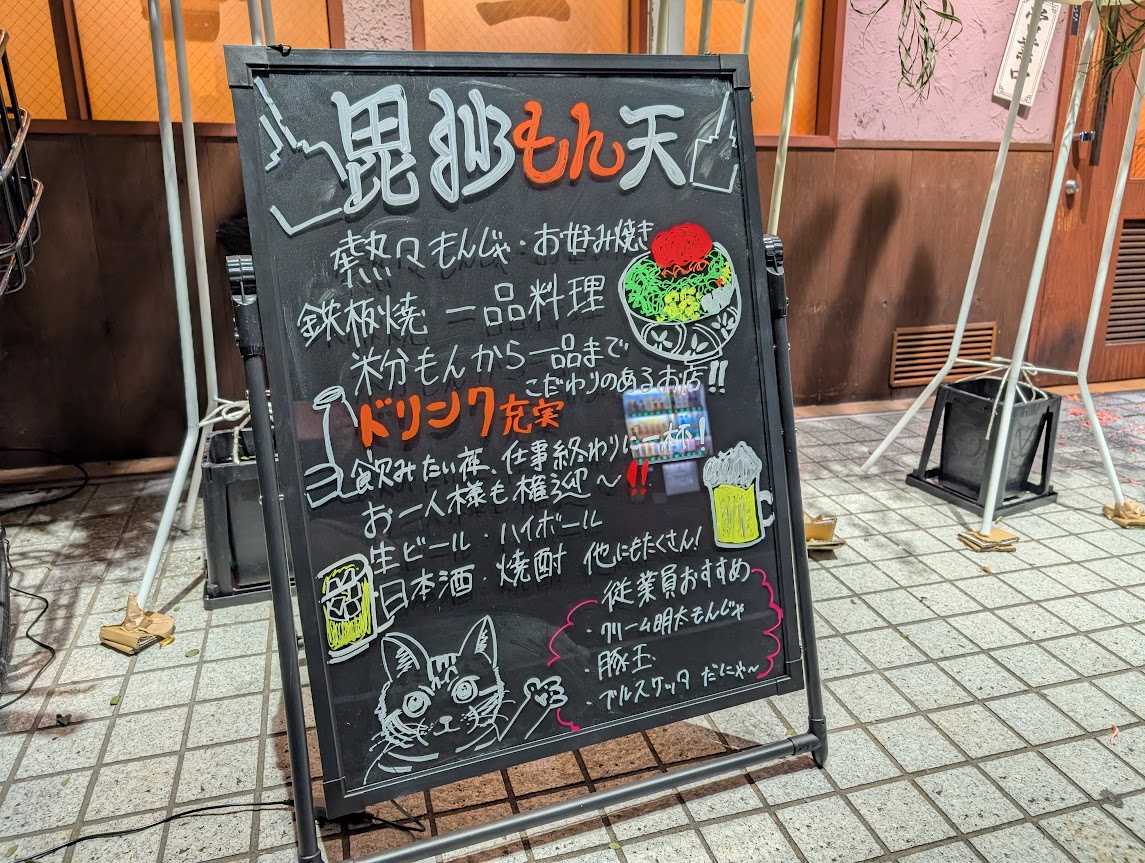 毘沙もん天
熱々もんじゃ・お好み焼き
鉄板焼 一品料理
粉もんから一品まで
こだわりのあるお店!!
ドリンク充実
飲みたい夜、仕事終わりに一杯!
お一人様も権迎〜!!
生ビール・ハイボール
日本酒・焼酎 他にもたくさん!
従業員おすすめ
・クリーム明太もんじゃ
・豚玉
・ブルスケッタ だにゃ〜